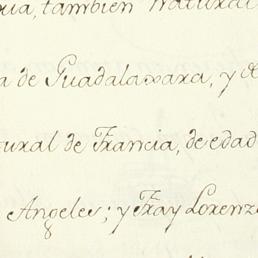 ria, tambien Natural
a de Guadalaxara, y de
tural de Francia, de edad
Angeles; y Fray Lorenz